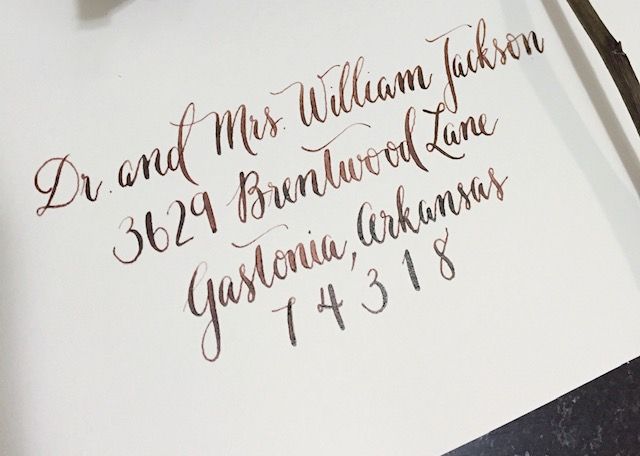 Dr. and Mrs. William Jackson
3629 Brentwood Lane
Gastonia, Arkansas
74318